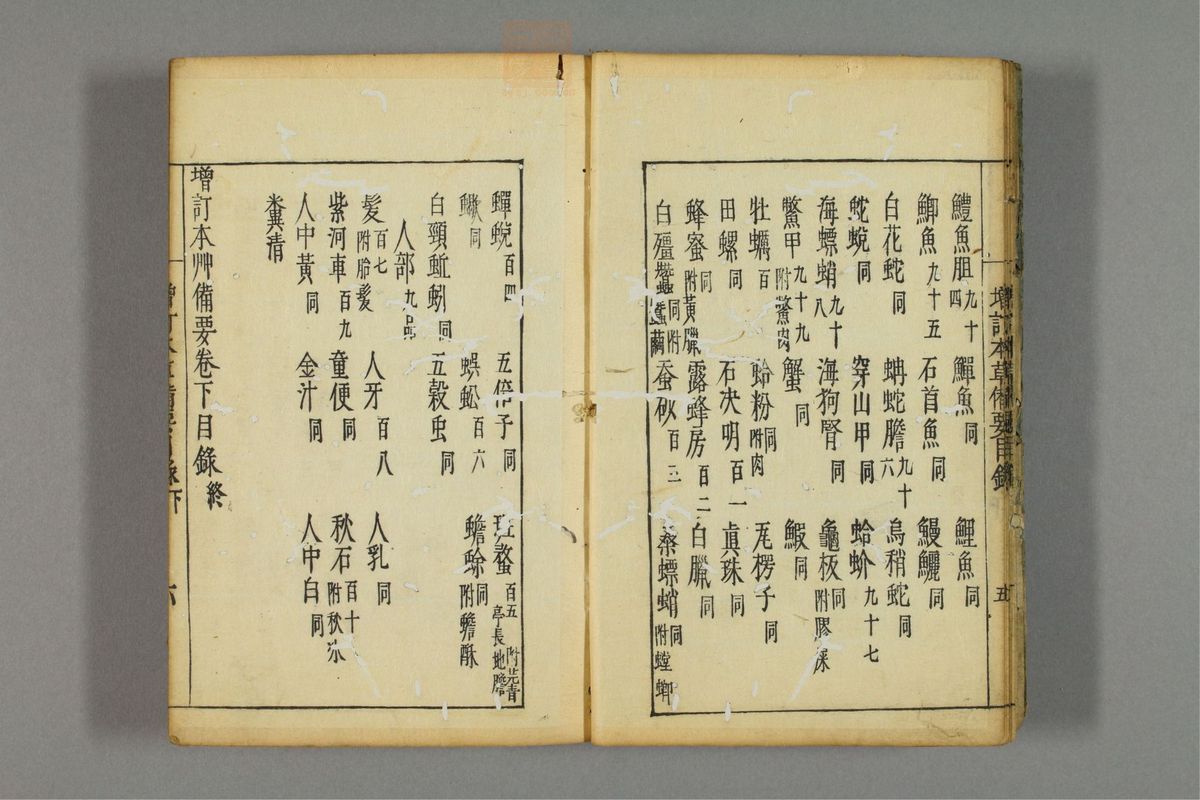 鱧魚胆 九十四 鱓魚 同 鯉魚 同
鯽魚 九十五 石首魚 同 鰻鱺 同
白花蛇 同 蚺蛇膽 九十六 烏稍蛇 同
蛇蛻 同 穿山甲 同 蛤蚧 九十七
海螵蛸 九十八 海狗腎 同 龜板 同 附膠
鱉甲 九十九 附鱉肉 蟹 同 鰕 同
牡蠣 百 蛤粉 同 附肉 瓦楞子 同
田螺 同 石决明 百一 眞珠 同
蜂蜜 同 附黃臘 露蜂房 百二 白臘 同
白殭蠶 同 附蠶繭 蚕砂 百三 桑螵蛸 同 附螳蜋
增訂本草備要目錄
五
蟬蛻 百四 五倍子 同 斑蝥 百五 附芫青 亭長 地膽
蠍 同 蜈蚣 百六 蟾蜍 同 附蟾酥
白頸蚯蚓 同 五穀虫 同
人部 九品
髮 百七 附胎髮 人牙 百八 人乳 同
紫河車 百九 童便 同 秋石 百十 附秋冰
人中黃 同 金汁 同 人中白 同
糞清
增訂本艸備要卷下目錄 終